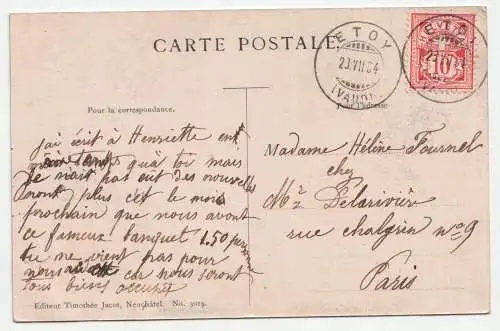 CARTE POSTALE.
ETOY
23.VII.04
(VAUD)
ETOY
10
Pour la correspondance.
Pour l'adresse
j'ai écrit à Henriette en
même temps qu'à toi mais
je n'ait pas eut des nouvelles
plus c'et le mois
prochain que nous avont
ce fameux banquet 1.50 par
tu ne vient pas pour
nous car nous seront
tous biens occupé
Madame Hélène Fournel
chez
Mr Delarivière
rue chalgrin no 9
Paris
Editeur Timothée Jacot, Neuchâtel. No. 3019.